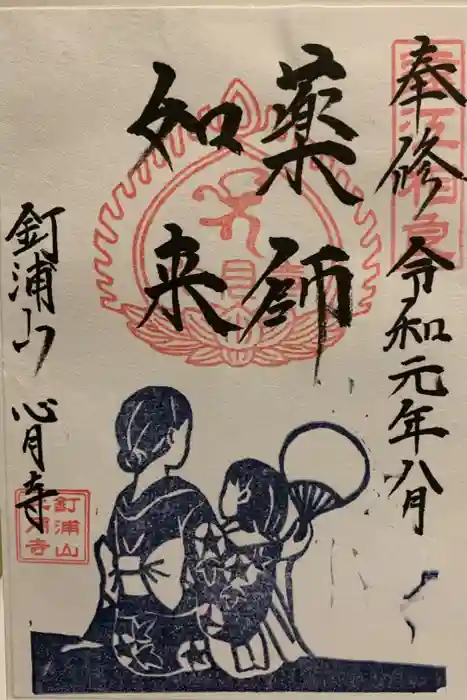 奉修 令和元年八月
薬師
如来
釘浦山 心月寺
釘浦山
心月寺